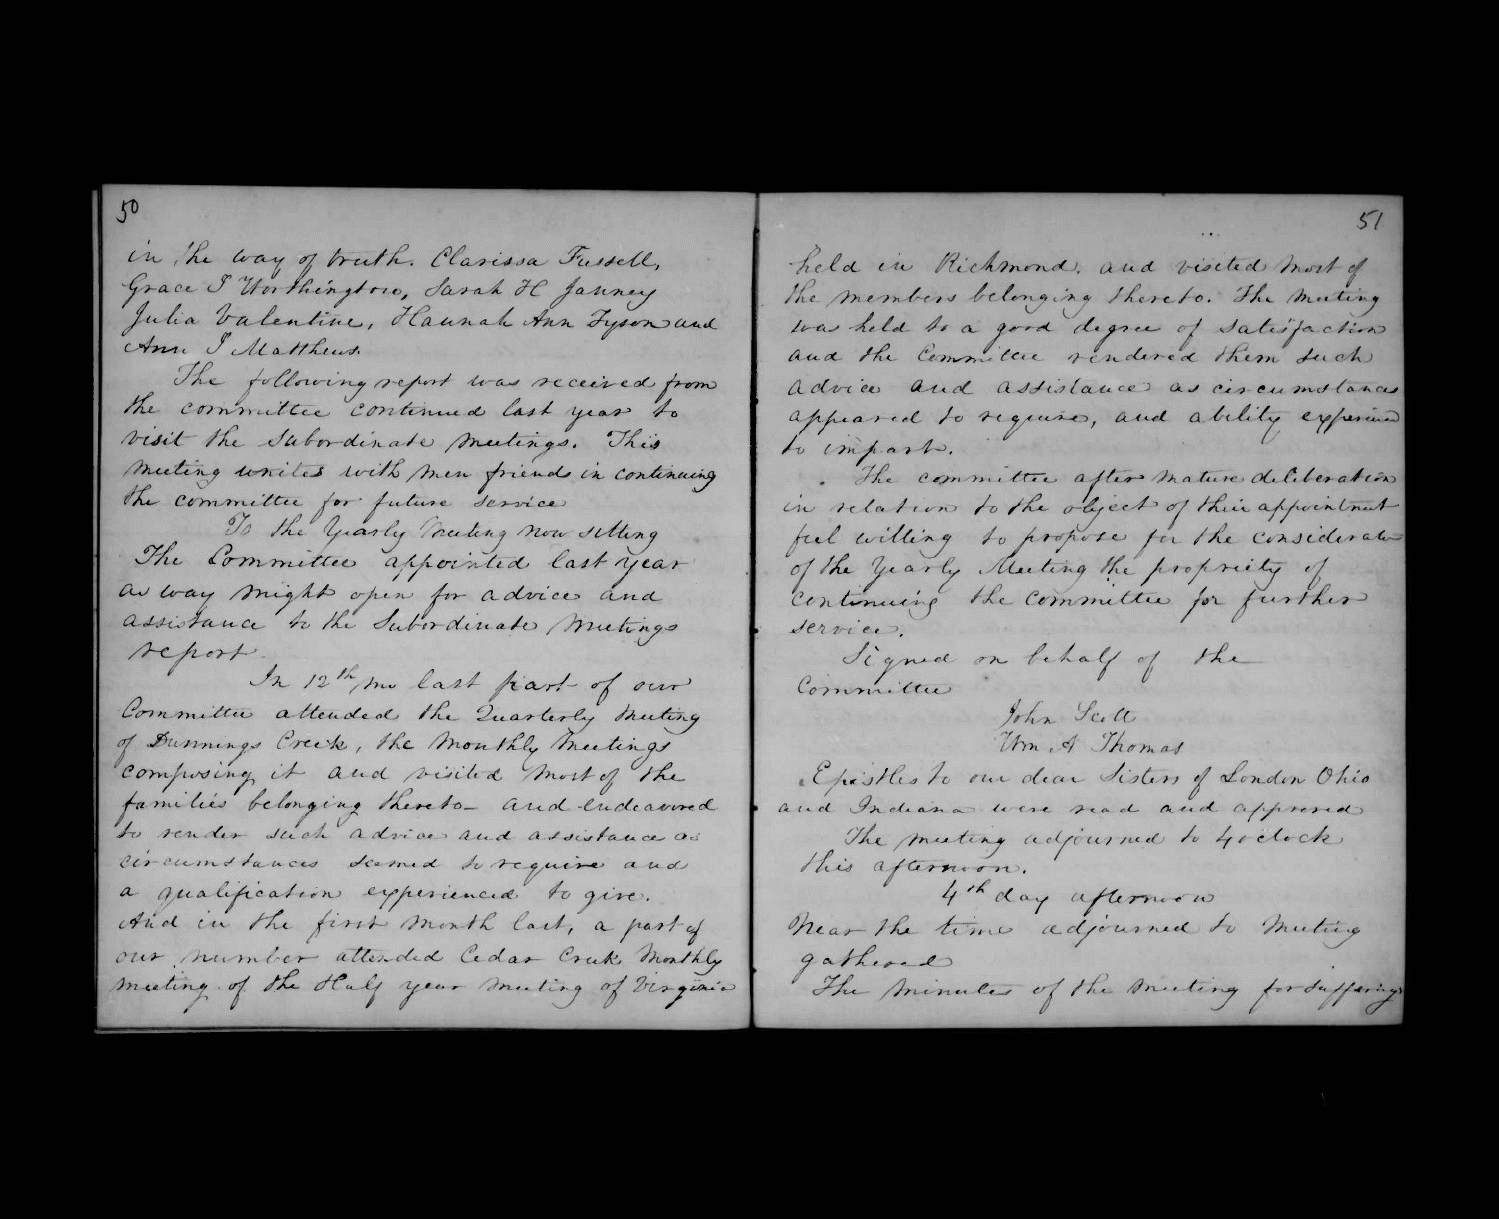 50
in the way of truth. Clarissa Fussell,
Grace I Worthington, Sarah H Janney
Julia Valentine, Hannah Ann Tyson and
Ann I Matthews.
The following report was received from
the committee continued last year to
visit the Subordinate meetings. This
meeting unites with men friends in continuing
the committee for future service
To the Yearly Meeting now sitting
The Committee appointed last year
as way might open for advice and
assistance to the Subordinate Meetings
report
In 12th mo last part of our
Committee attended the Quarterly Meeting
of Dunnings Creek, the Monthly Meetings
composing it and visited most of the
families belonging thereto - and endeavored
to render such advice and assistance as
circumstances seemed to require and
a qualification experienced to give.
And in the first month last, a part of
our number attended Cedar Creek Monthly
meeting of the Half year meeting of Virginia
51
held in Richmond, and visited most of
the members belonging thereto. The meeting
was held to a good degree of satisfaction
and the Committee rendered them such
advice and assistance as circumstances
appeared to require, and ability experienced
to impart.
The committee after mature deliberation
in relation to the object of their appointment
feel willing to propose for the consideration
of the Yearly Meeting the propriety of
continuing the committee for further
service.
Signed on behalf of the
Committee
John Scott
Wm A Thomas
Epistles to our dear Sisters of London Ohio
and Indiana were read and approved
The meeting adjourned to 4 oclock
this afternoon.
4th day afternoon
Near the time adjourned to Meeting
gathered
The minutes of the meeting for sufferings